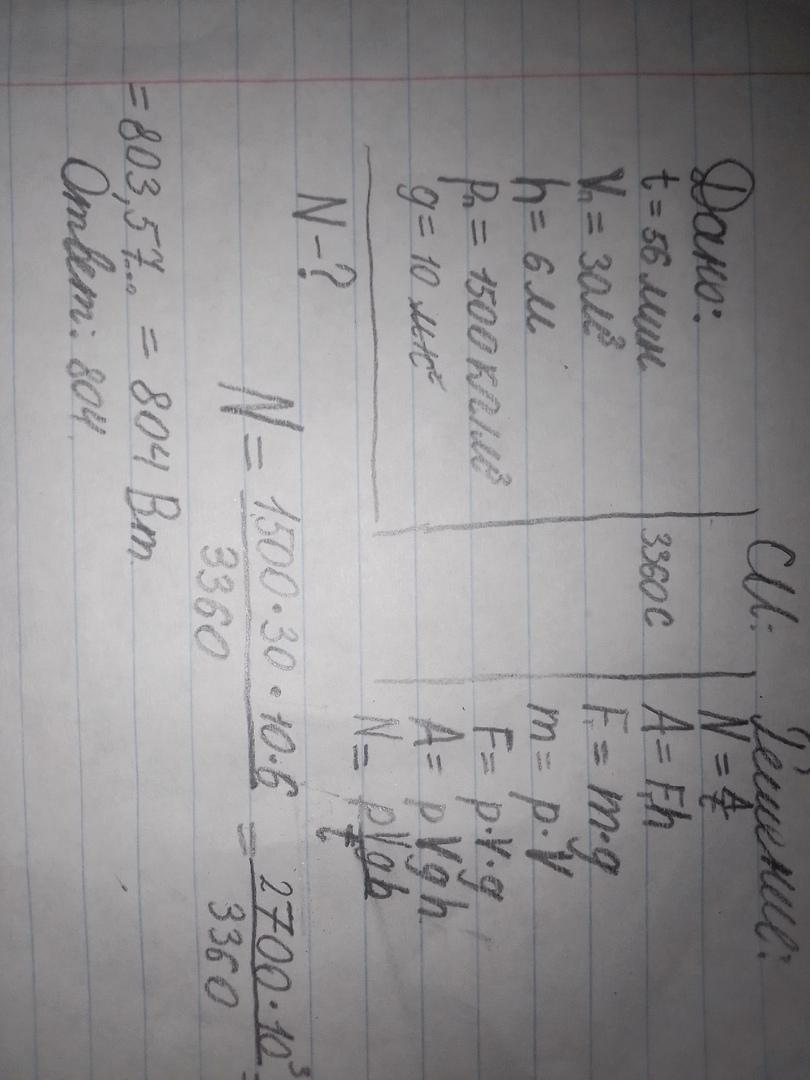 Дано:
t = 56 мин
Vп = 30 м³
h = 6 м
ρп = 1500 кг/м³
g = 10 м/с²
N - ?
СИ:
3360 с
Решение:
N = A/t
A = F·h
F = m·g
m = ρ·V
F = ρ·V·g
A = ρVgh
N = ρVgh/t
N = 1500·30·10·6/3360 = 2700·10³/3360 =
= 803,57... = 804 Вт
Ответ: 804